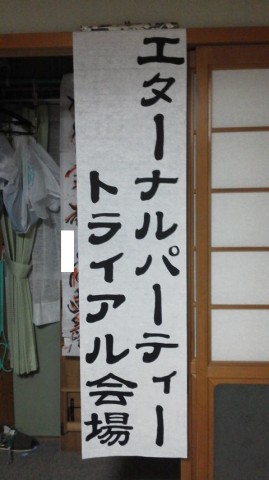 エターナルパーティー
トライアル会場